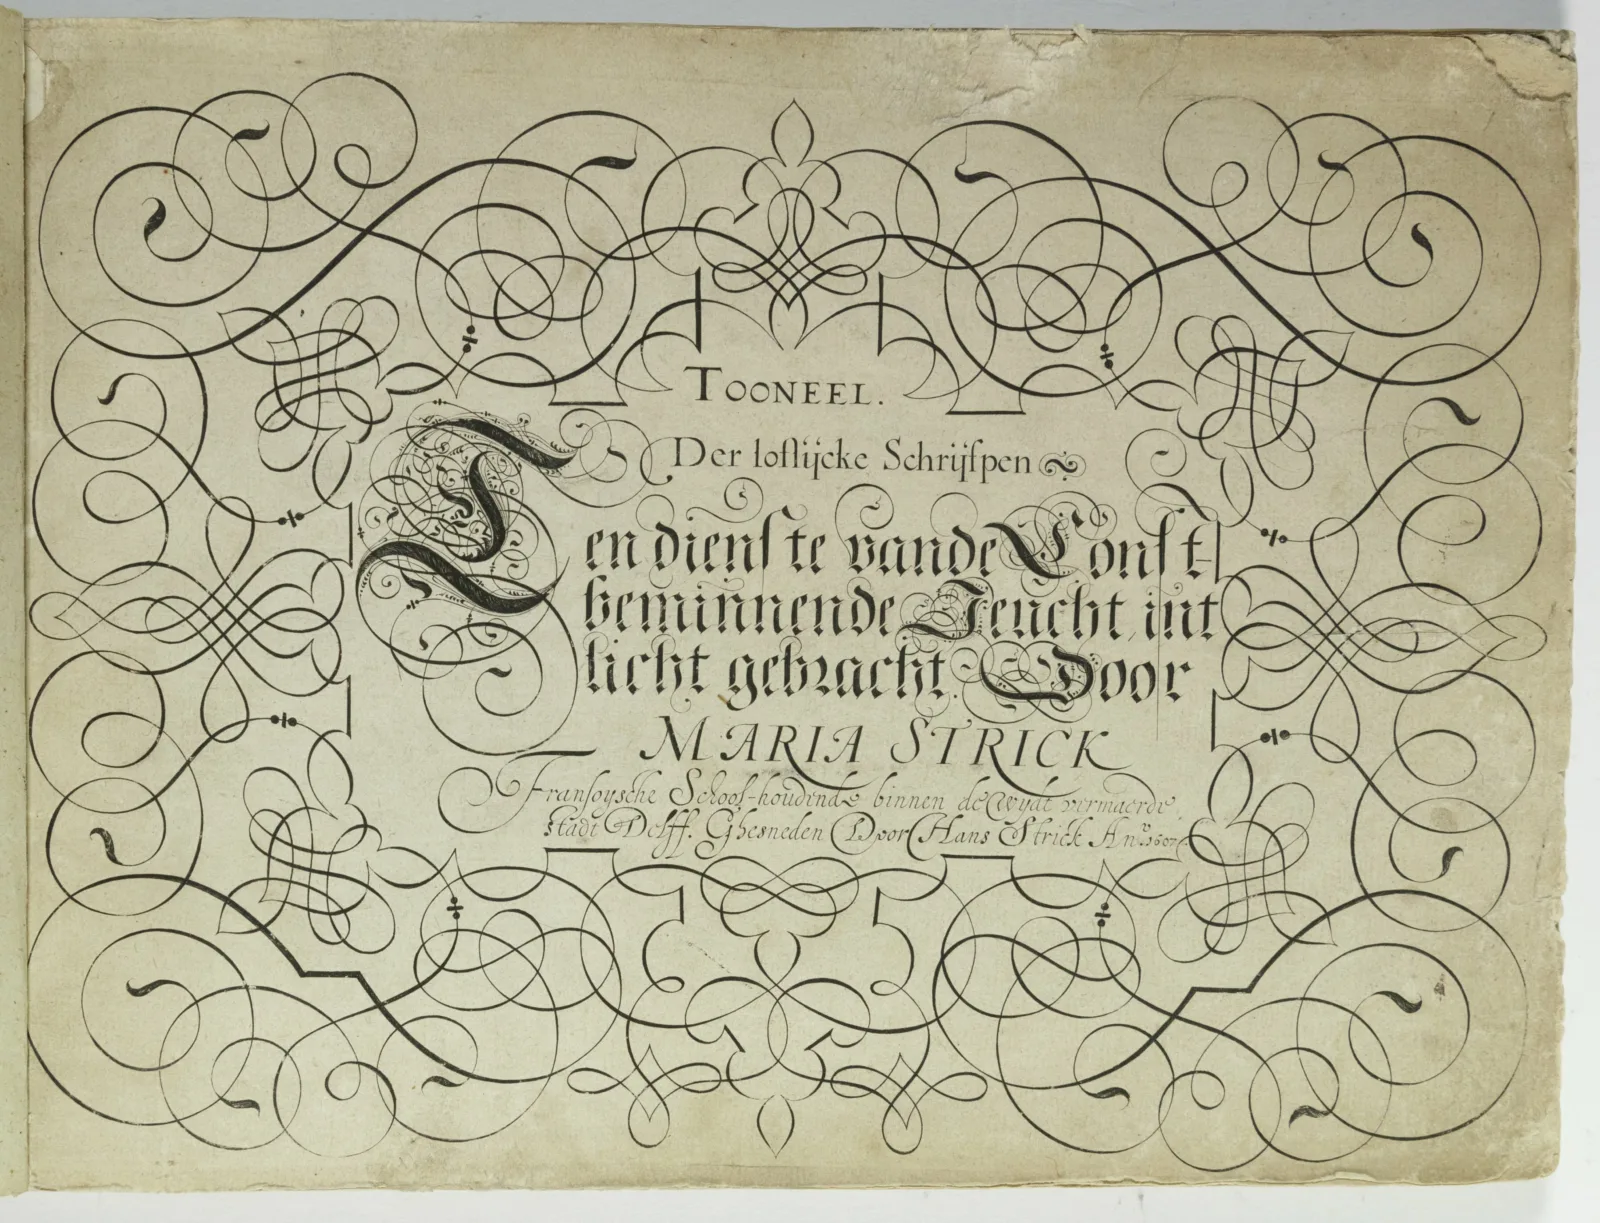 TOONEEL.
Der loflijcke Schrijfpen
Ten dienste vande Const-
beminnende Jeucht, int
licht gebracht. Door
MARIA STRICK
Fransoysche School-houdende binnen de wydt vermaerde
stadt Delff. Ghesneden Door Hans Strick Anº. 1607